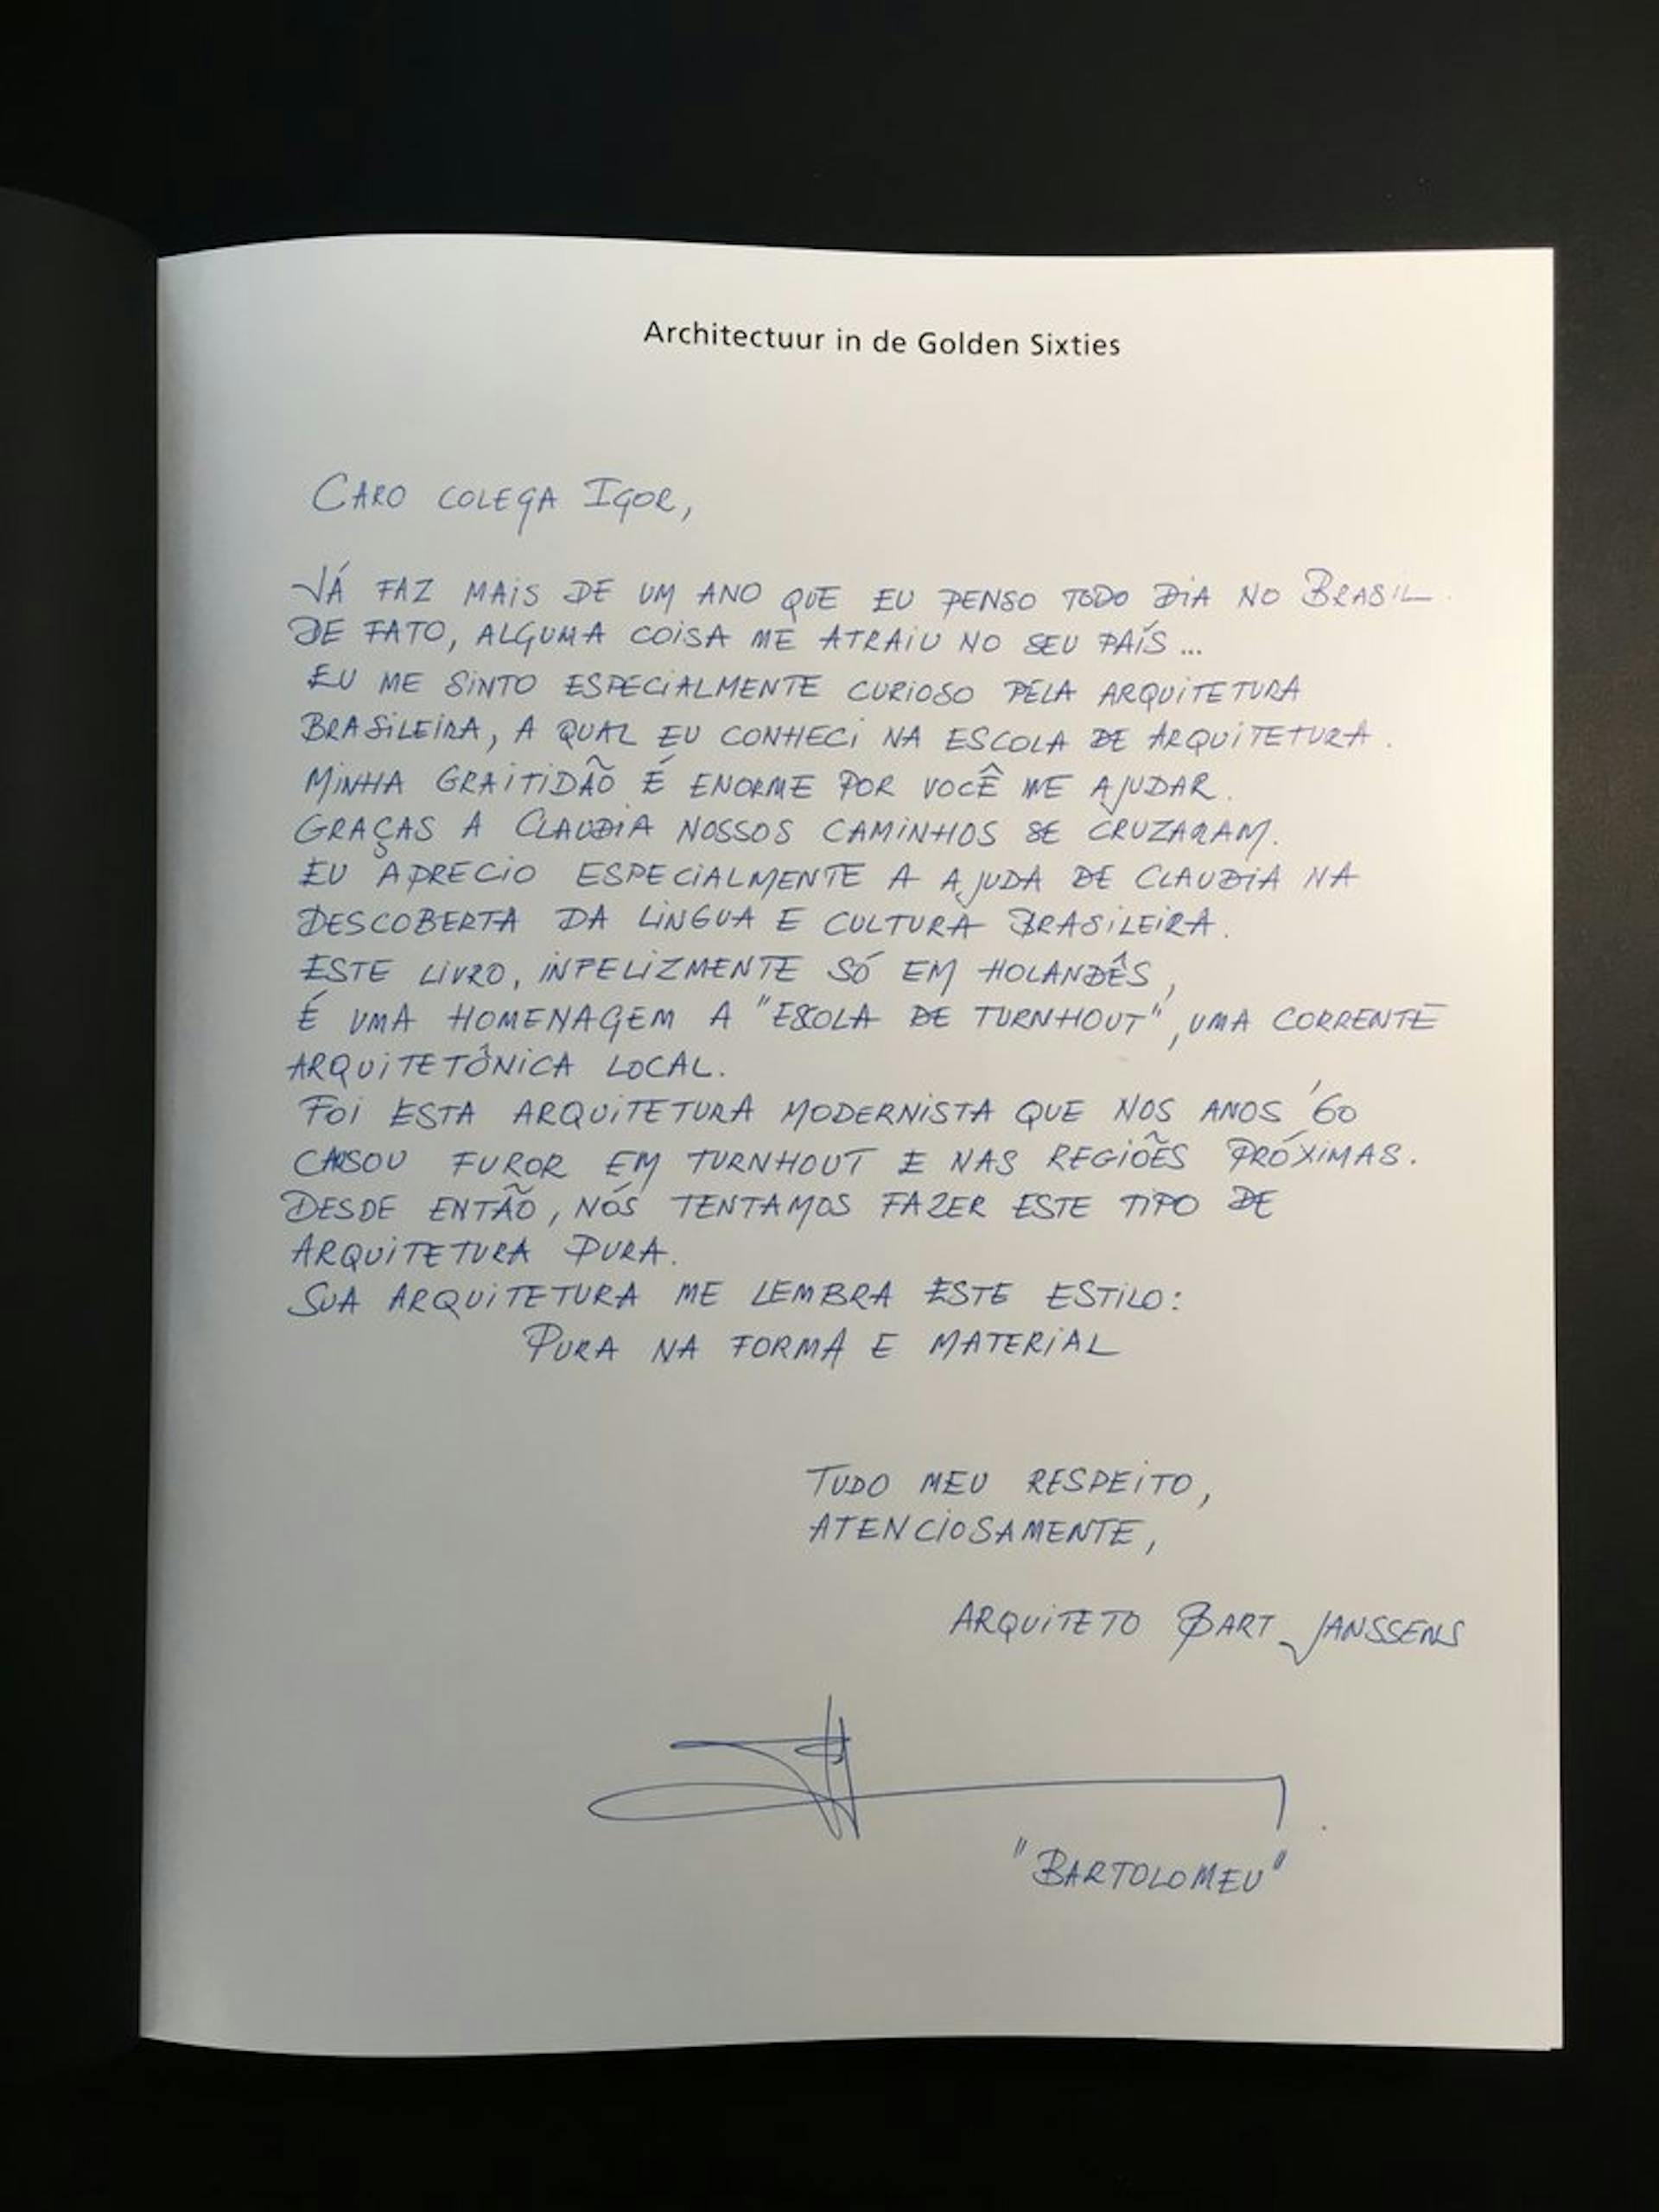 Architectuur in de Golden Sixties
CARO COLEGA IGOR,
JÁ FAZ MAIS DE UM ANO QUE EU PENSO TODO DIA NO BRASIL.
DE FATO, ALGUMA COISA ME ATRAIU NO SEU PAÍS...
EU ME SINTO ESPECIALMENTE CURIOSO PELA ARQUITETURA
BRASILEIRA, A QUAL EU CONHECI NA ESCOLA DE ARQUITETURA.
MINHA GRAITIDÃO É ENORME POR VOCÊ ME AJUDAR.
GRAÇAS A CLAUDIA NOSSOS CAMINHOS SE CRUZARAM.
EU APRECIO ESPECIALMENTE A AJUDA DE CLAUDIA NA
DESCOBERTA DA LINGUA E CULTURA BRASILEIRA.
ESTE LIVRO, INFELIZMENTE SÓ EM HOLANDÊS,
É UMA HOMENAGEM A "ESCOLA DE TURNHOUT", UMA CORRENTE
ARQUITETÔNICA LOCAL.
FOI ESTA ARQUITETURA MODERNISTA QUE NOS ANOS '60
CAUSOU FUROR EM TURNHOUT E NAS REGIÕES PRÓXIMAS.
DESDE ENTÃO, NÓS TENTAMOS FAZER ESTE TIPO DE
ARQUITETURA PURA.
SUA ARQUITETURA ME LEMBRA ESTE ESTILO:
PURA NA FORMA E MATERIAL
TUDO MEU RESPEITO,
ATENCIOSAMENTE,
ARQUITETO BART JANSSENS
"BARTOLOMEU"